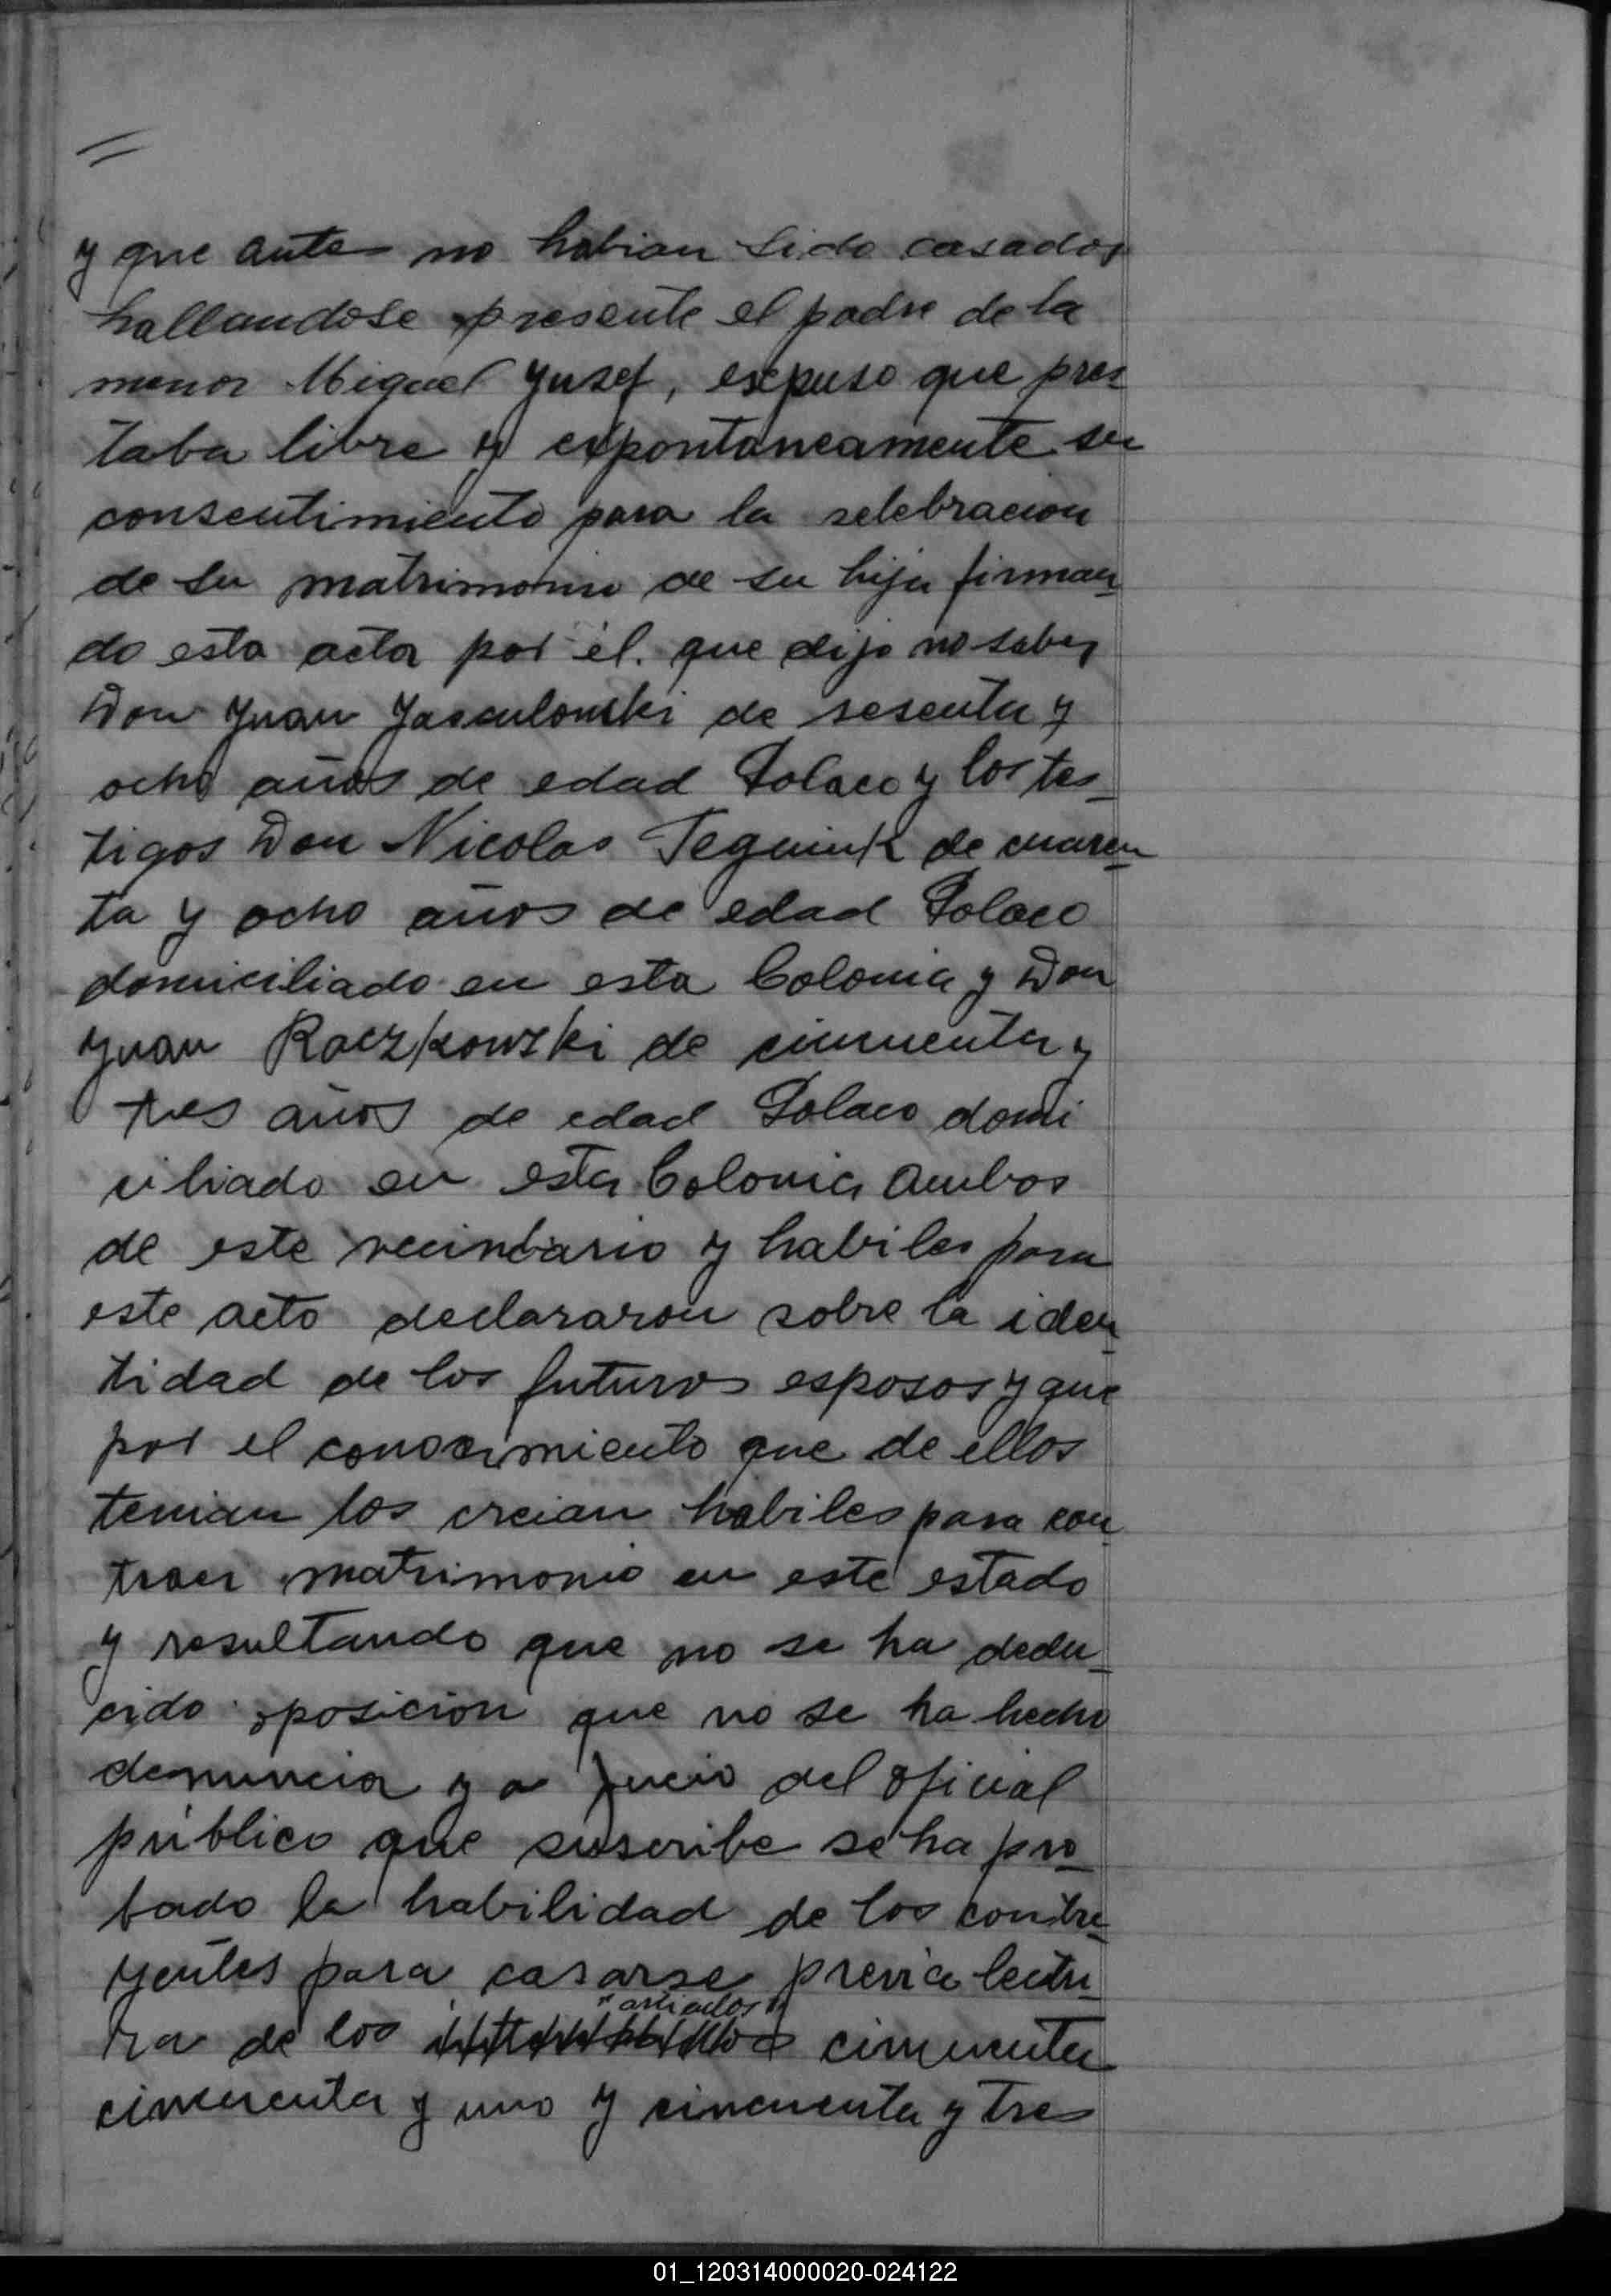 y que antes no habian sido casados
hallandose presente el padre de la
menor Miguel Yusef, expuso que pres
taba libre y expontaneamente su
consentimiento para la selebracion
de su matrimonio de su hija firman
do esta acta por él. que dijo no saber
Don Juan de sesenta y
ocho años de edad Polaco y los tes_
tigos Don Nicolas de cuaren
ta y ocho años de edad Polaco
domiciliado en esta Colonia y Don
Juan Raczkowski de cincuenta y
tres años de edad Polaco domi
ciliado en esta Colonia Ambos
de este vecindario y habiles para
este acto declararon sobre la iden
tidad de los futuros esposos y que
por el conocimiento que de ellos
tenian los creian habiles para con
traer matrimonio en este estado
y resultando que no se ha dedu_
cido oposicion que no se ha hecho
denuncia y a jucio del oficial
público que suscribe se ha pro_
bado la habilidad de los contra_
yentes para casarse previa lectu_
"articulos"
ra de los cincuenta
cincuenta y uno y cincuenta y tres
01_120314000020-024122